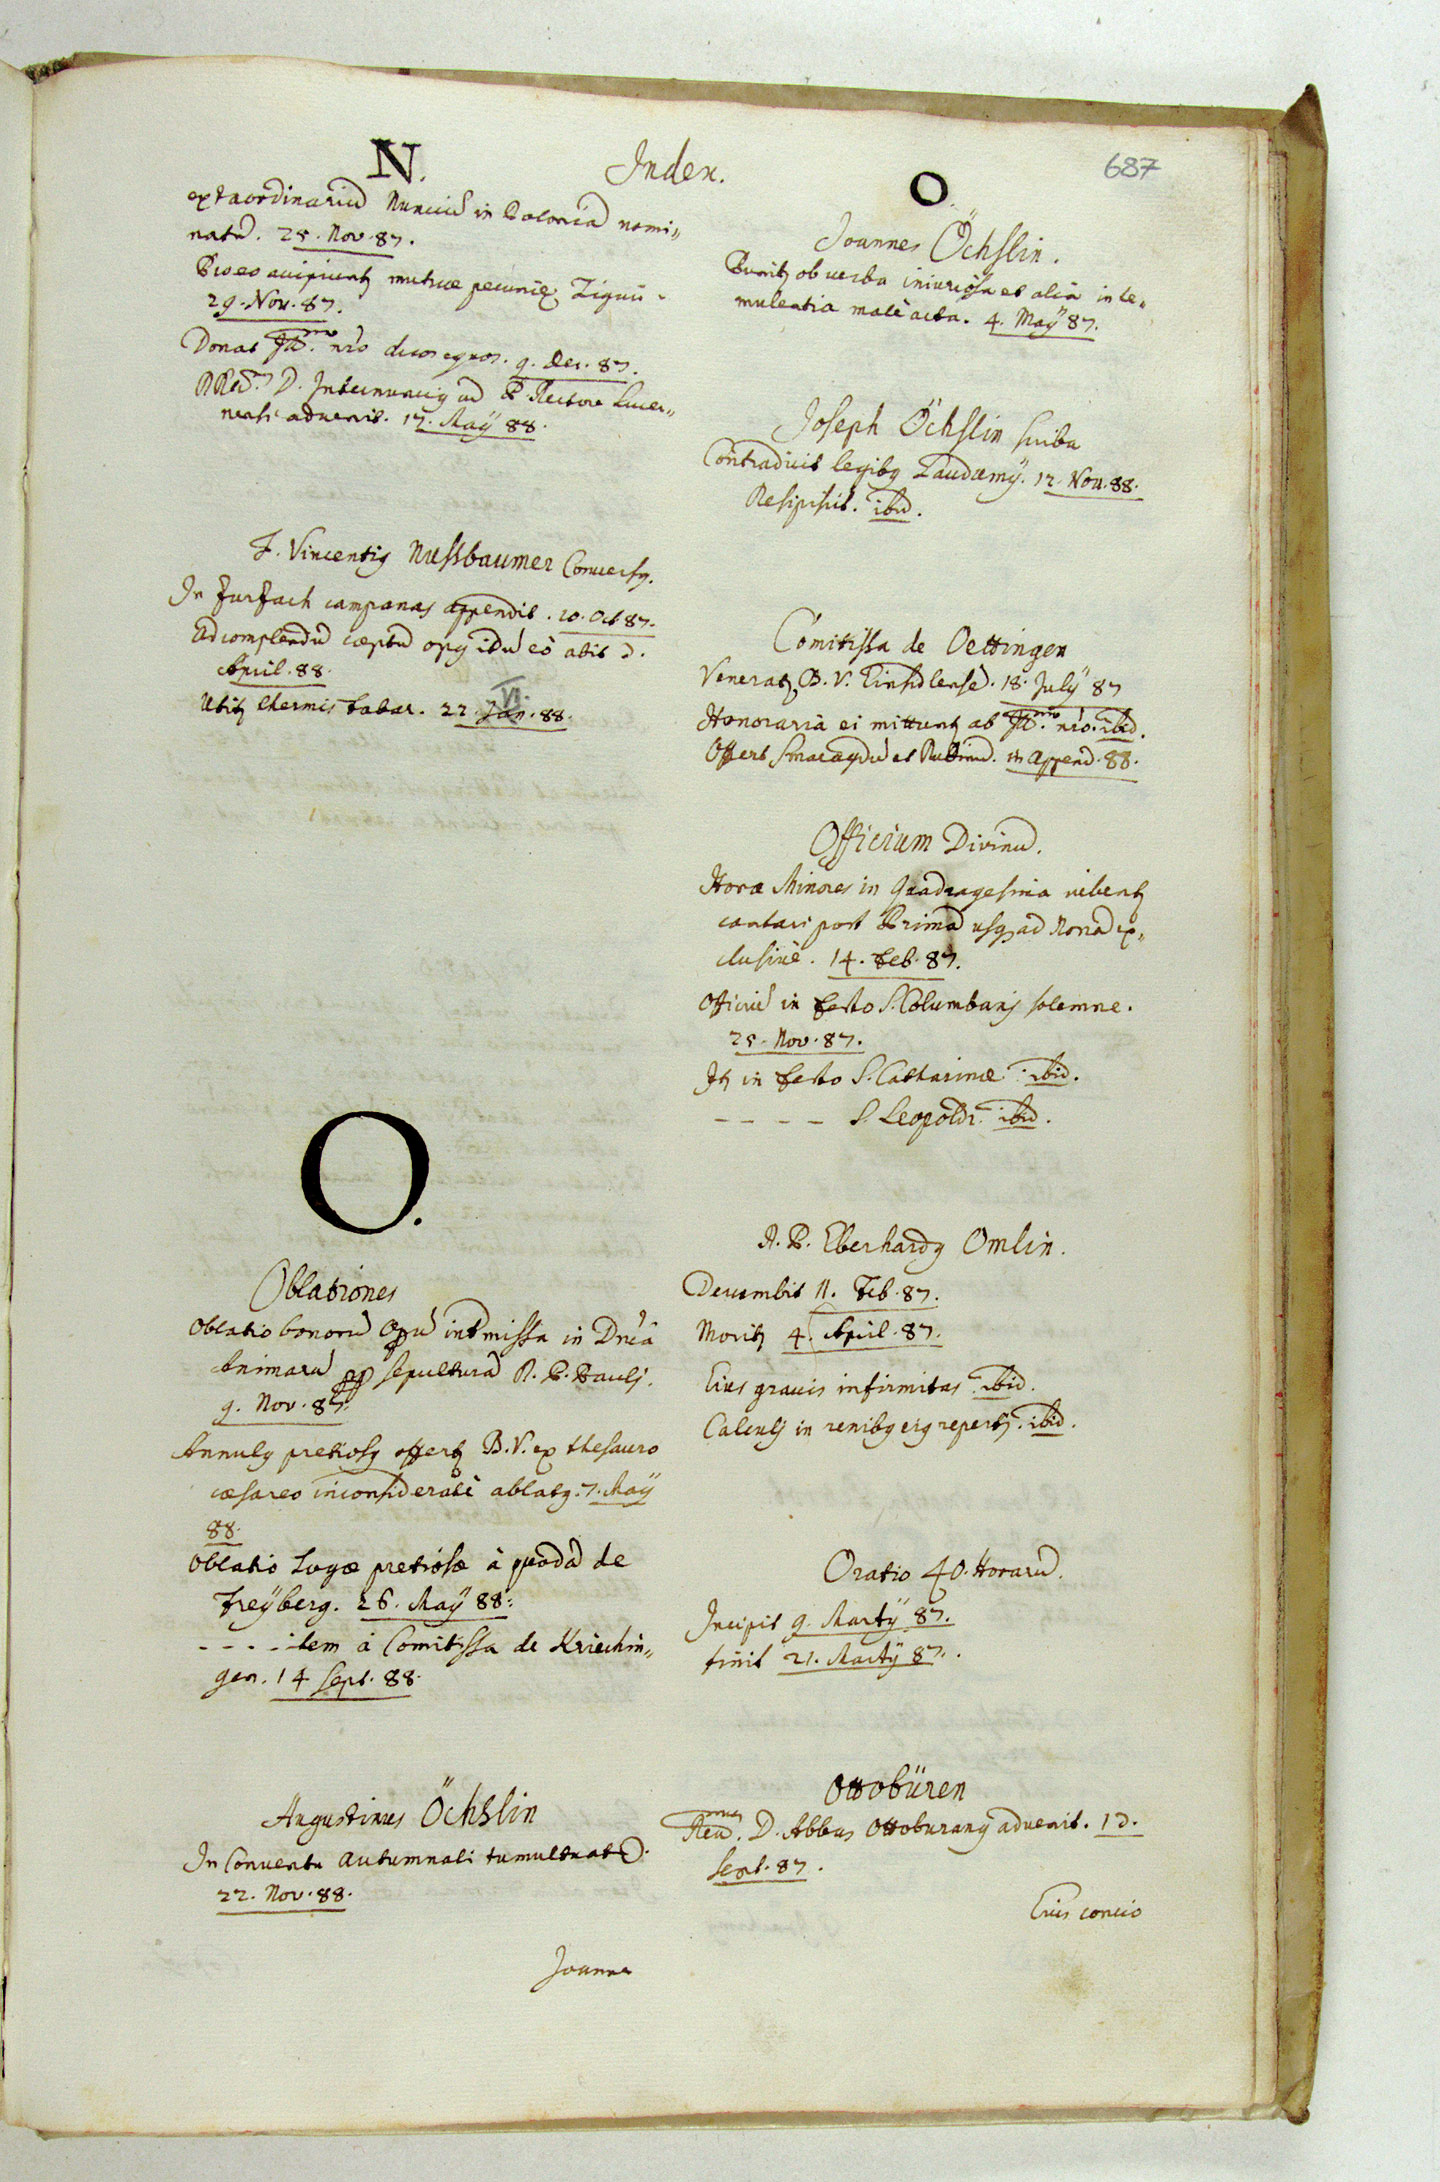 N.
Index.
O.
687
extraordinariũ Nunciũ in Poloniã nomi„
natũ. 25. Nov. 87.
Pro eo accipiuntʒ mutuæ pecuniæ Tiguri
29. Nov. 87.
Donat Ill.mo nr̃o duos equos. 9. Dec. 87.
RRẽd. D. Internunciꝯ ad P. Rectorẽ Lucer„
nensẽ advenit. 17. Maÿ 88.
F. Vincentiꝯ Nussbaumer Conversꝯ.
In Zurzach campanas appendit. 20. Oct 87.
Ad complendũ cæptũ opꝯ idũ eò abit 3.
April. 88.
Utitʒ thermis Fabar. 22. Jan. 88.
VI.
O.
Oblationes
Oblatio bonorũ opũ intermissa in Dnĩcâ
Animarũ ꝓꝑ sepulturã R. P. Paulj.
9. Nov. 87.
Annulꝯ pretiosꝯ offertʒ B. V. ex thesauro
cæsareo inconsideratè ablatꝯ. 7. Maÿ
88.
Oblatio togæ pretiosæ à quâdã de
Freÿberg. 26. Maÿ 88.
- - - - item à Comitissa de Kriechin„
gen. 14 Sept. 88.
Augustinus Öchslin
In Conventu autumnali tumultuatʒ.
22. Nov. 88.
Joannes
Joannes Öchslin.
Punitʒ ob verba iniuriosa et alia in te„
mulentia malè acta. 4. Maÿ 87.
Joseph Öchslin scriba
Contradicit legibꝯ Laudæmÿ. 12. Nov. 88.
Resipiscit. ibid.
Comitissa de Oettingen
Veneratʒ B. V. Einsidlensẽ. 18. Julÿ 87
Honoraria ei mittuntʒ ab Ill.mo nr̃o. ibid.
Offert Smaragdũ et Rubinũ. in append. 88.
Officium Divinũ.
Horæ Minores in Quadragesima iubentʒ
cantari post Primã usqꝫ ad Nonã ex„
clusivè. 14. Feb. 87.
Officiũ in festo S. Columbanj solemne.
25. Nov. 87.
Itʒ in festo S. Catharinæ. ibid.
- - - - S. Leopoldi. ibid.
R. P. Eberhardꝯ Omlin.
Decumbit 11. Feb. 87.
Moritʒ 4. April. 87.
Eius gravis infirmitas. ibid.
Calculj in renibꝯ eiꝯ repertj. ibid.
Oratio 40. Horarũ.
Incipit 9. Martÿ 87.
finit 21. Martÿ 87.
Ottobüren
Reũ.mus D. Abbas Ottoburanꝯ advenit. 13.
Sept. 87.
Eius concio